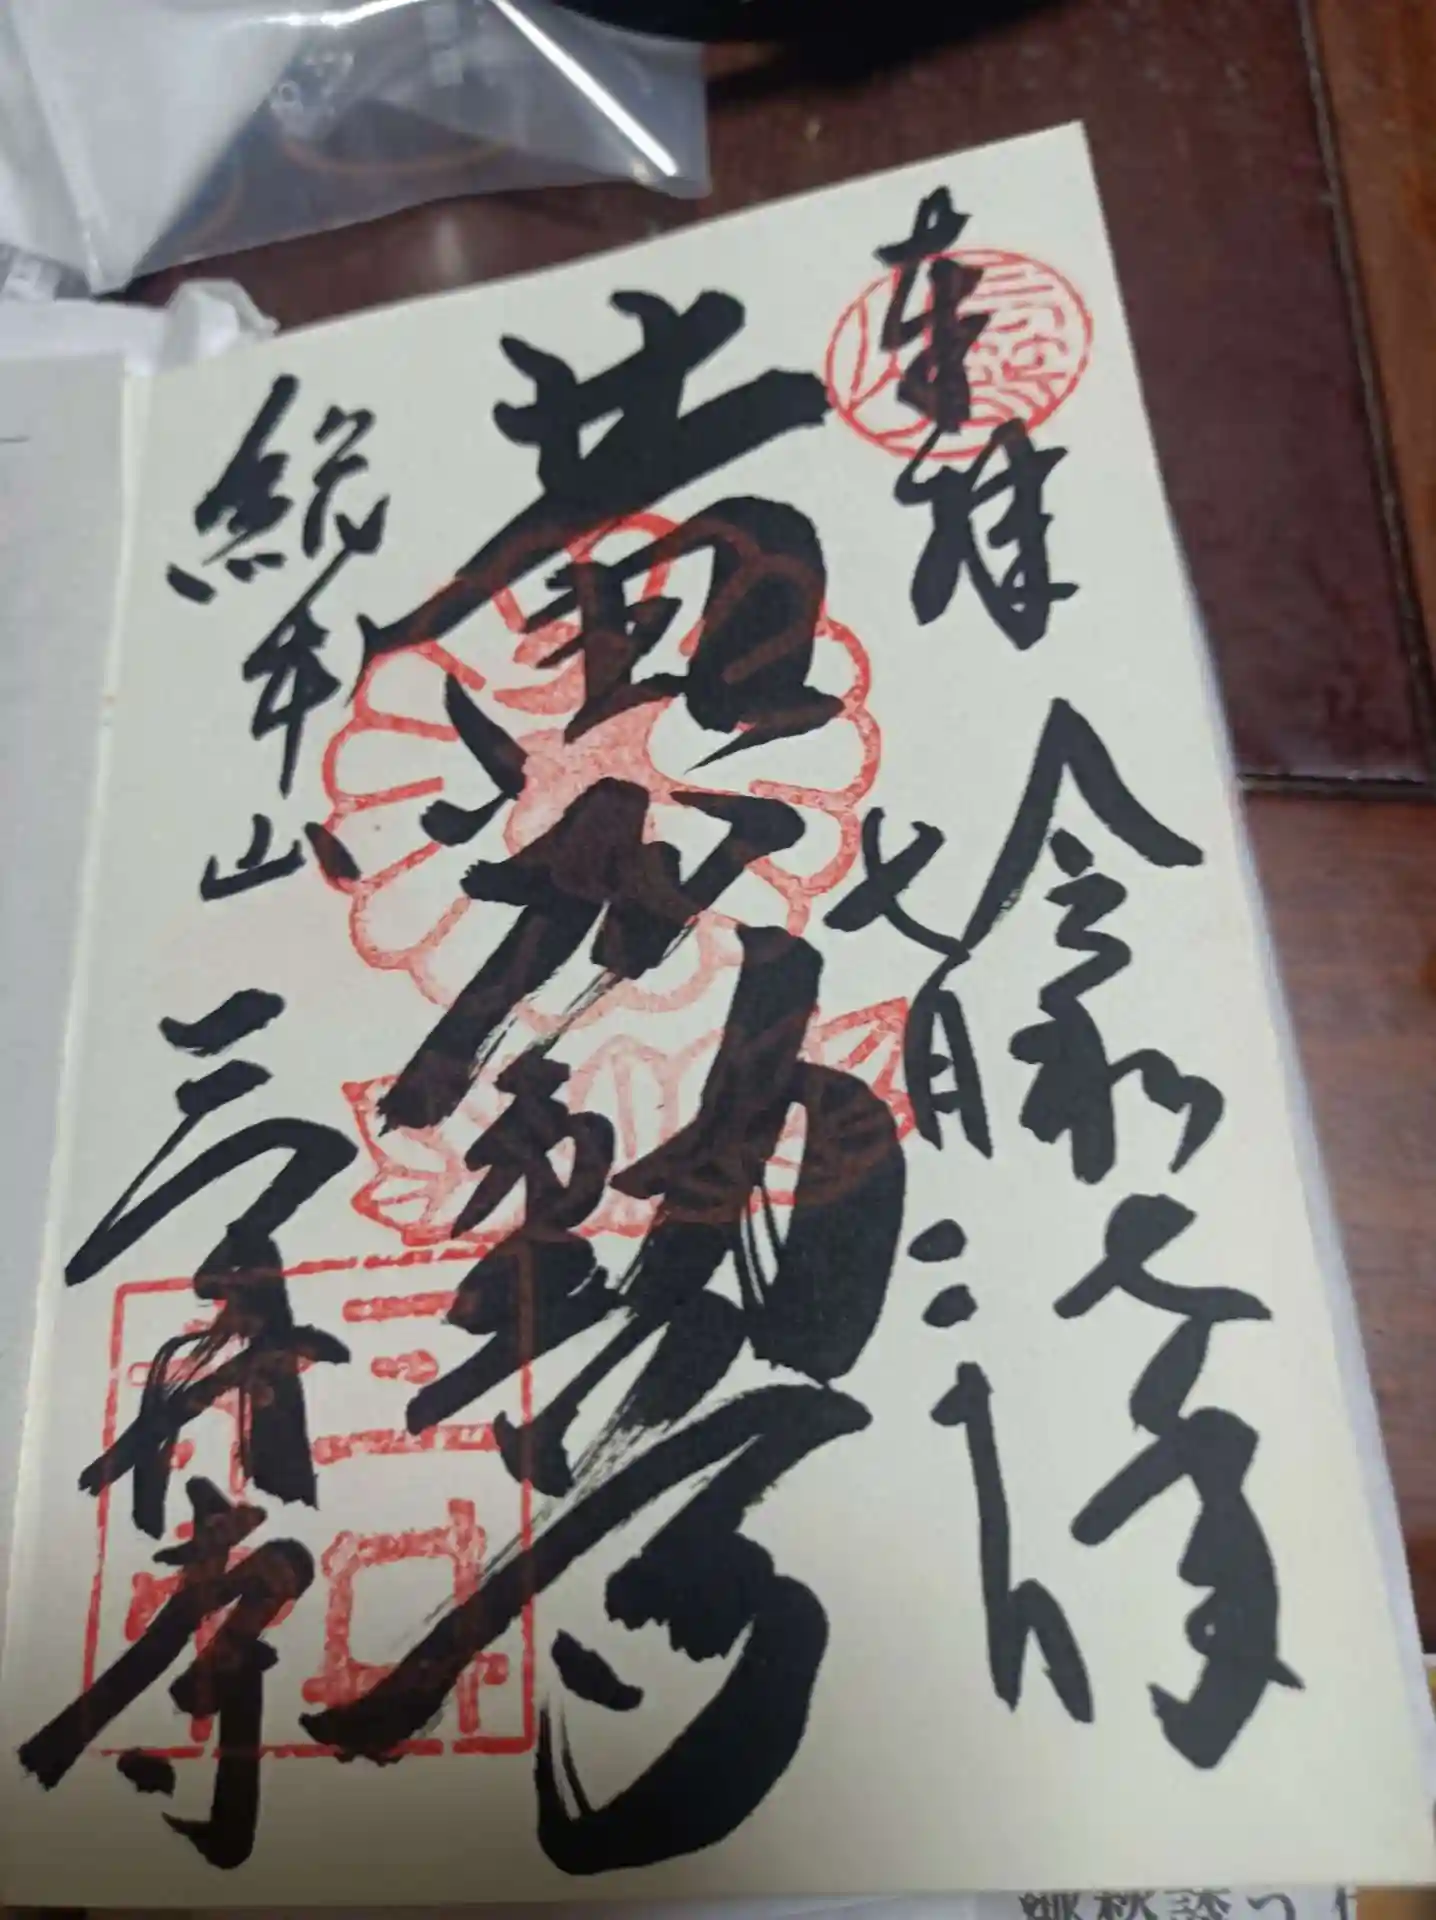 奉拝
令和七年
七月
黄不動尊
総本山
三井寺